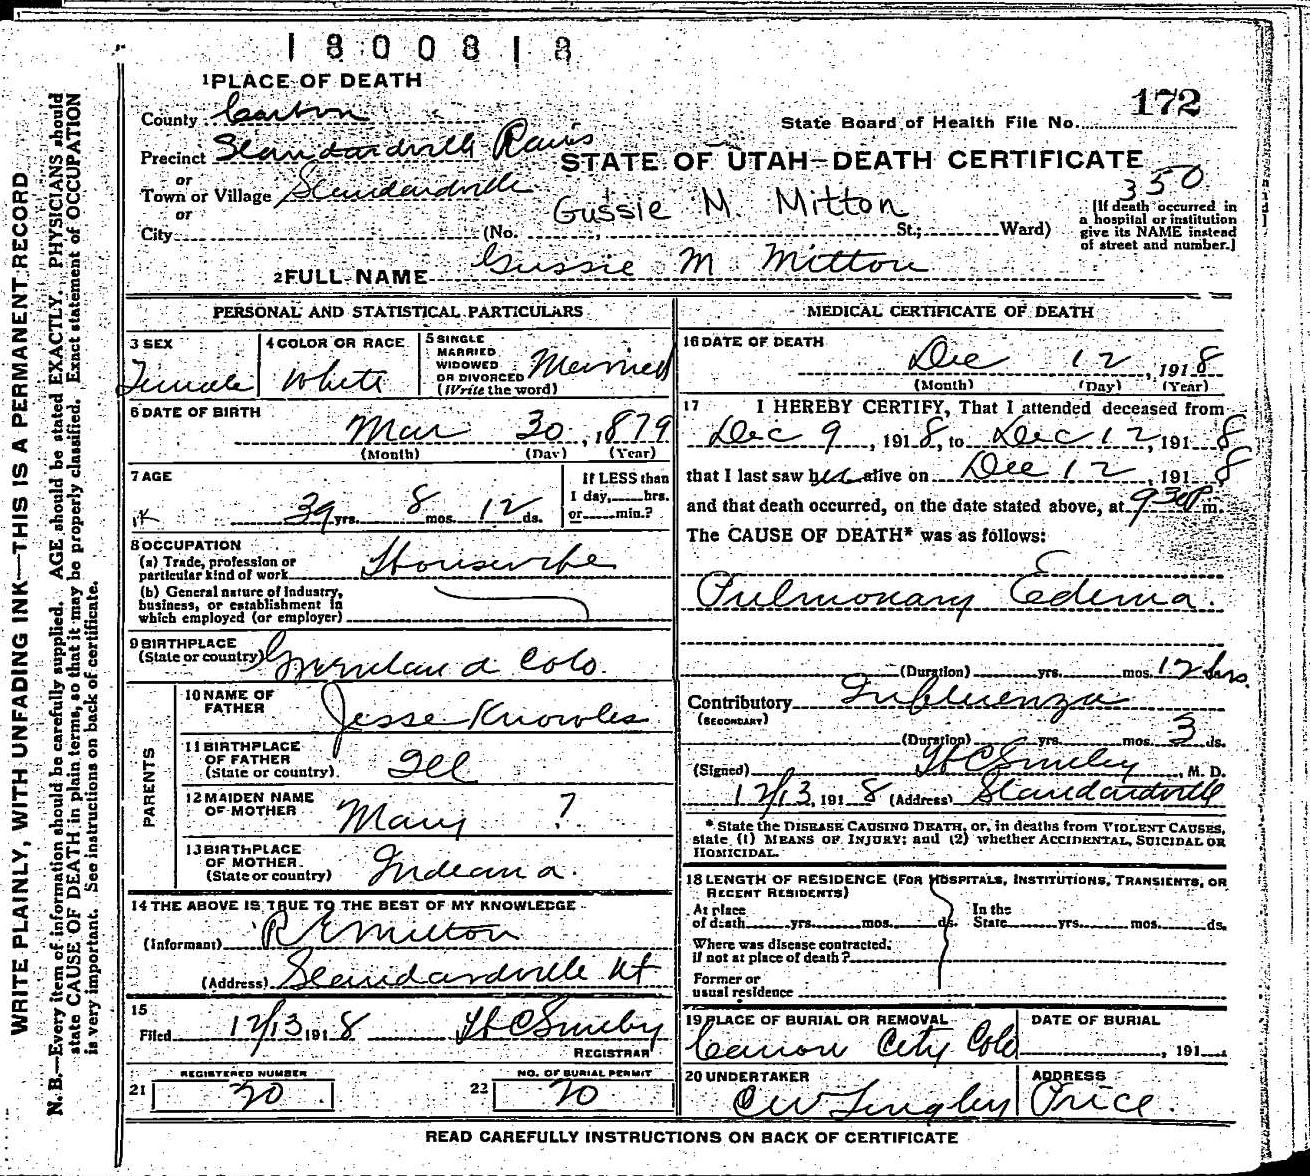 1800818
1 PLACE OF DEATH
172
County Carbon
State Board of Health File No.
Precinct Standardville
STATE OF UTAH—DEATH CERTIFICATE
or
Town or Village Standardville
350
or
Gussie M. Mitton
[If death occurred in
a hospital or institution
give its NAME instead
of street and number.]
City (No. , St.; Ward)
2 FULL NAME Gussie M Mitton
PERSONAL AND STATISTICAL PARTICULARS
3 SEX
Female
4 COLOR OR RACE
White
5 SINGLE
MARRIED
WIDOWED
OR DIVORCED
(Write the word)
Married
6 DATE OF BIRTH
Mar 30, 1879
(Month) (Day) (Year)
7 AGE
39 yrs. 8 mos. 12 ds.
If LESS than
1 day, hrs.
or min.?
8 OCCUPATION
(a) Trade, profession or
particular kind of work Housewife
(b) General nature of industry,
business, or establishment in
which employed (or employer)
9 BIRTHPLACE
(State or country) Greenland Colo.
PARENTS
10 NAME OF
FATHER
Jesse Knowles
11 BIRTHPLACE
OF FATHER
(State or country).
Ill
12 MAIDEN NAME
OF MOTHER
Mary ?
13 BIRTHPLACE
OF MOTHER.
(State or country)
Indeana.
14 THE ABOVE IS TRUE TO THE BEST OF MY KNOWLEDGE
(Informant) R E Mitton
(Address) Standardville Ut
15
Filed 12/13 1918 H C Smiley
REGISTRAR
REGISTERED NUMBER
21 20
NO. OF BURIAL PERMIT
22 20
MEDICAL CERTIFICATE OF DEATH
16 DATE OF DEATH
Dec 12, 1918
(Month) (Day) (Year)
17 I HEREBY CERTIFY, That I attended deceased from
Dec 9, 1918, to Dec 12, 1918
that I last saw her alive on Dec 12, 1918
and that death occurred, on the date stated above, at 930P m.
The CAUSE OF DEATH* was as follows:
Pulmonary Edema.
(Duration) yrs. mos. 12 hrs.
Contributory Influenza
(SECONDARY)
(Duration) yrs. mos. 3 ds.
(Signed) H C Smiley, M. D.
12/13, 1918 (Address) Standardville
* State the DISEASE CAUSING DEATH, or, in deaths from VIOLENT CAUSES,
state (1) MEANS OF INJURY; and (2) whether ACCIDENTAL, SUICIDAL OR
HOMICIDAL.
18 LENGTH OF RESIDENCE (FOR HOSPITALS, INSTITUTIONS, TRANSIENTS, OR
RECENT RESIDENTS)
At place
of death yrs. mos. ds.
In the
State yrs. mos. ds.
Where was disease contracted,
if not at place of death?
Former or
usual residence
19 PLACE OF BURIAL OR REMOVAL
Canon City Colo
DATE OF BURIAL
, 191
20 UNDERTAKER
ADDRESS
Price.
READ CAREFULLY INSTRUCTIONS ON BACK OF CERTIFICATE
WRITE PLAINLY, WITH UNFADING INK—THIS IS A PERMANENT RECORD
N. B.—Every item of information should be carefully supplied. AGE should be stated EXACTLY. PHYSICIANS should
state CAUSE OF DEATH in plain terms, so that it may be properly classified. Exact statement of OCCUPATION
is very important. See instructions on back of certificate.